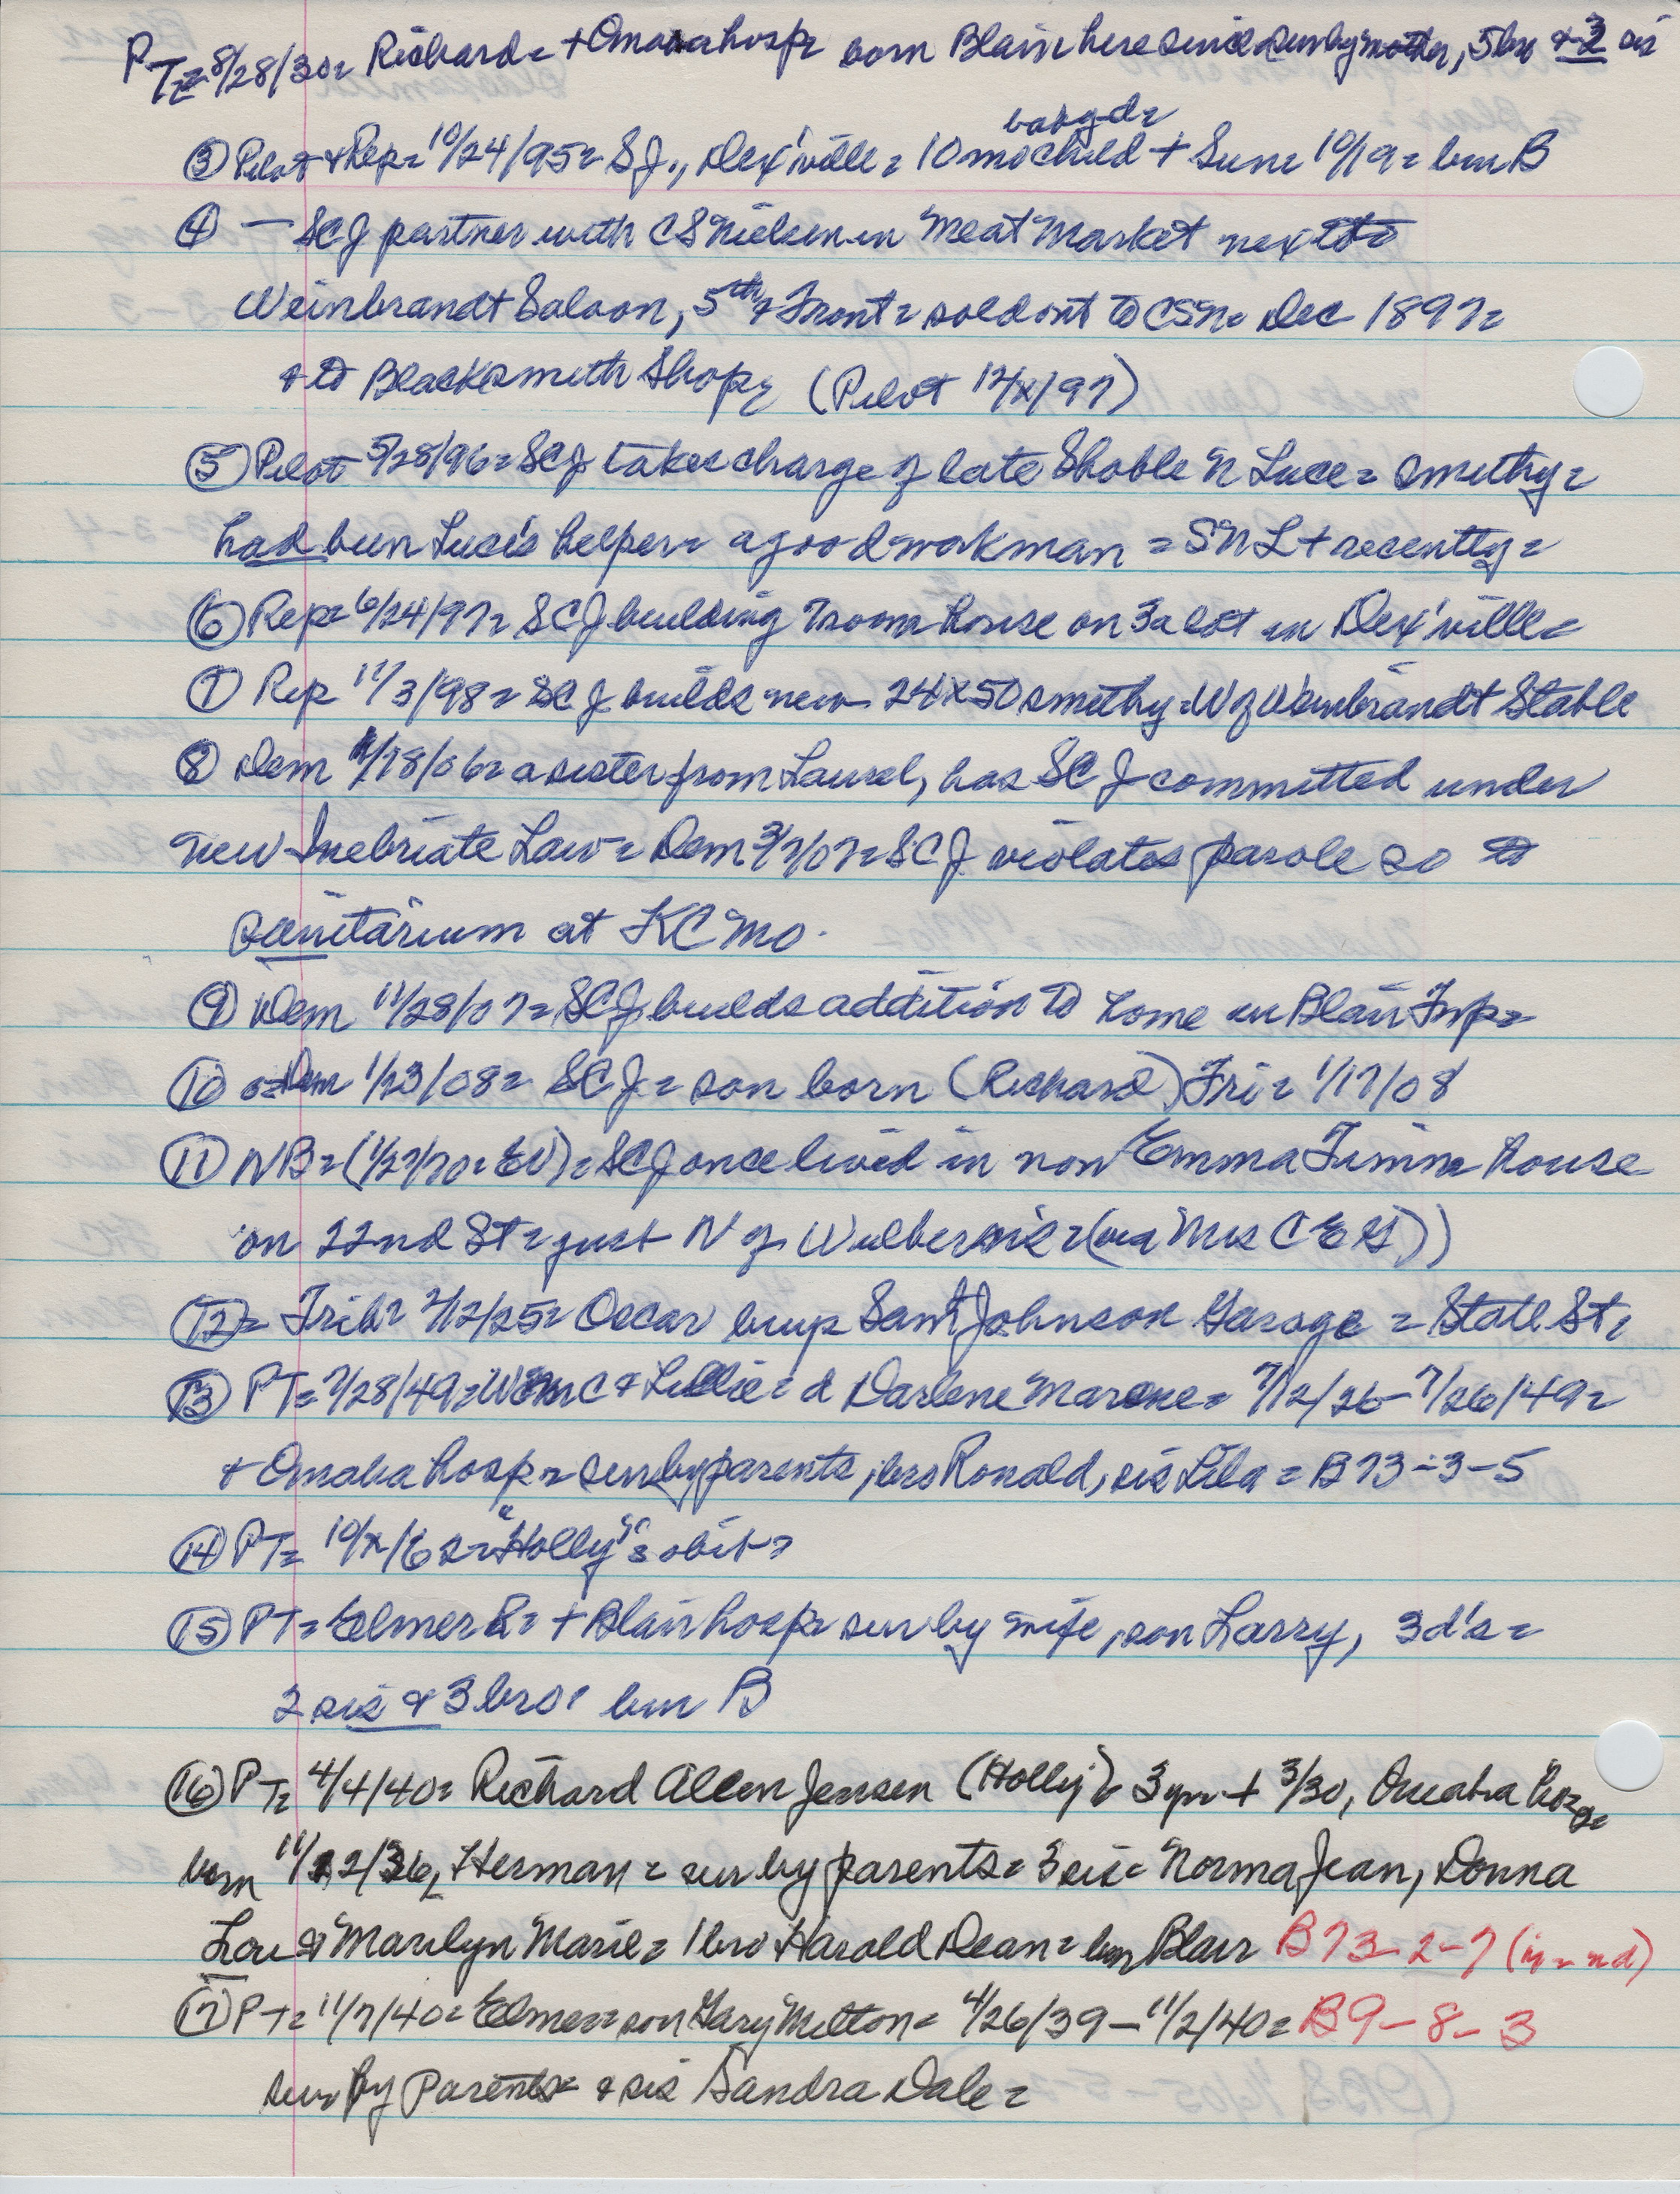 PT= 8/28/30= Richard= + Omaha hosp= born Blair here since sur by mother, 5 bro & 3 sis
baby d=
③ Pilot & Rep= 10/24/95= S.J., Dex'ville= 10 mo child + Sun= 10/19= bur B
④ — SCJ partner with CS Nielsen in Meat Market next to
Weinbrandt Saloon, 5th & Front= sold out to CSN= Dec 1897=
& to Blacksmith Shop= (Pilot 12/x/97)
⑤ Pilot 5/28/96= SCJ takes charge of late Shoble N Luce= smithy=
had been Luce's helper= a good workman = SNL + recently=
⑥ Rep= 6/24/97= SCJ building 7 room house on 3a lot in Dex'ville=
⑦ Rep 11/3/98= SCJ builds new 24x50 smithy= W of Weinbrandt Stable
⑧ Dem /18/06= a sister from Laurel, has SCJ committed under
new Inebriate Law= Dem 3/7/07= SCJ violates parole so to
sanitarium at KC Mo.
⑨ Dem 11/28/07= SCJ builds addition to home in Blair Twp=
⑩ Dem 1/23/08= SCJ= son born (Richard) Fri= 1/17/08
⑪ NB= (1/27/70= EV)= SCJ once lived in now Emma Timm house
on 22nd St= just N of (via Mrs C E G))
⑫= Trib= 2/12/25= Oscar buys Sam'l Johnson Garage = State St=
⑬ PT= 7/28/49= Wm C & Lillie= d Darlene Marone= 7/12/26- 7/26/49=
+ Omaha hosp= sur by parents, bro Ronald, sis Lila = B73-3-5
⑭ PT= 10/x/62= "Holly's" obit=
⑮ PT= Elmer R= + Blair hosp= sur by wife, son Larry, 3 d's=
2 sis & 3 bros= bur B
⑯ PT= 4/4/40= Richard Allen Jensen (Holly)= 3 yr= + 3/30, Omaha hosp=
born 11/22/36, Herman = sur by parents= 3 sis= Norma Jean, Donna
Lou & Marilyn Marie= 1 bro Harold Dean= bur Blair B73-2-7 (in= nd)
⑰ PT= 11/7/40= Elmer= son Gary Milton= 4/26/39 – 11/2/40= B9-8-3
sur by Parents= & sis Sandra Dale=